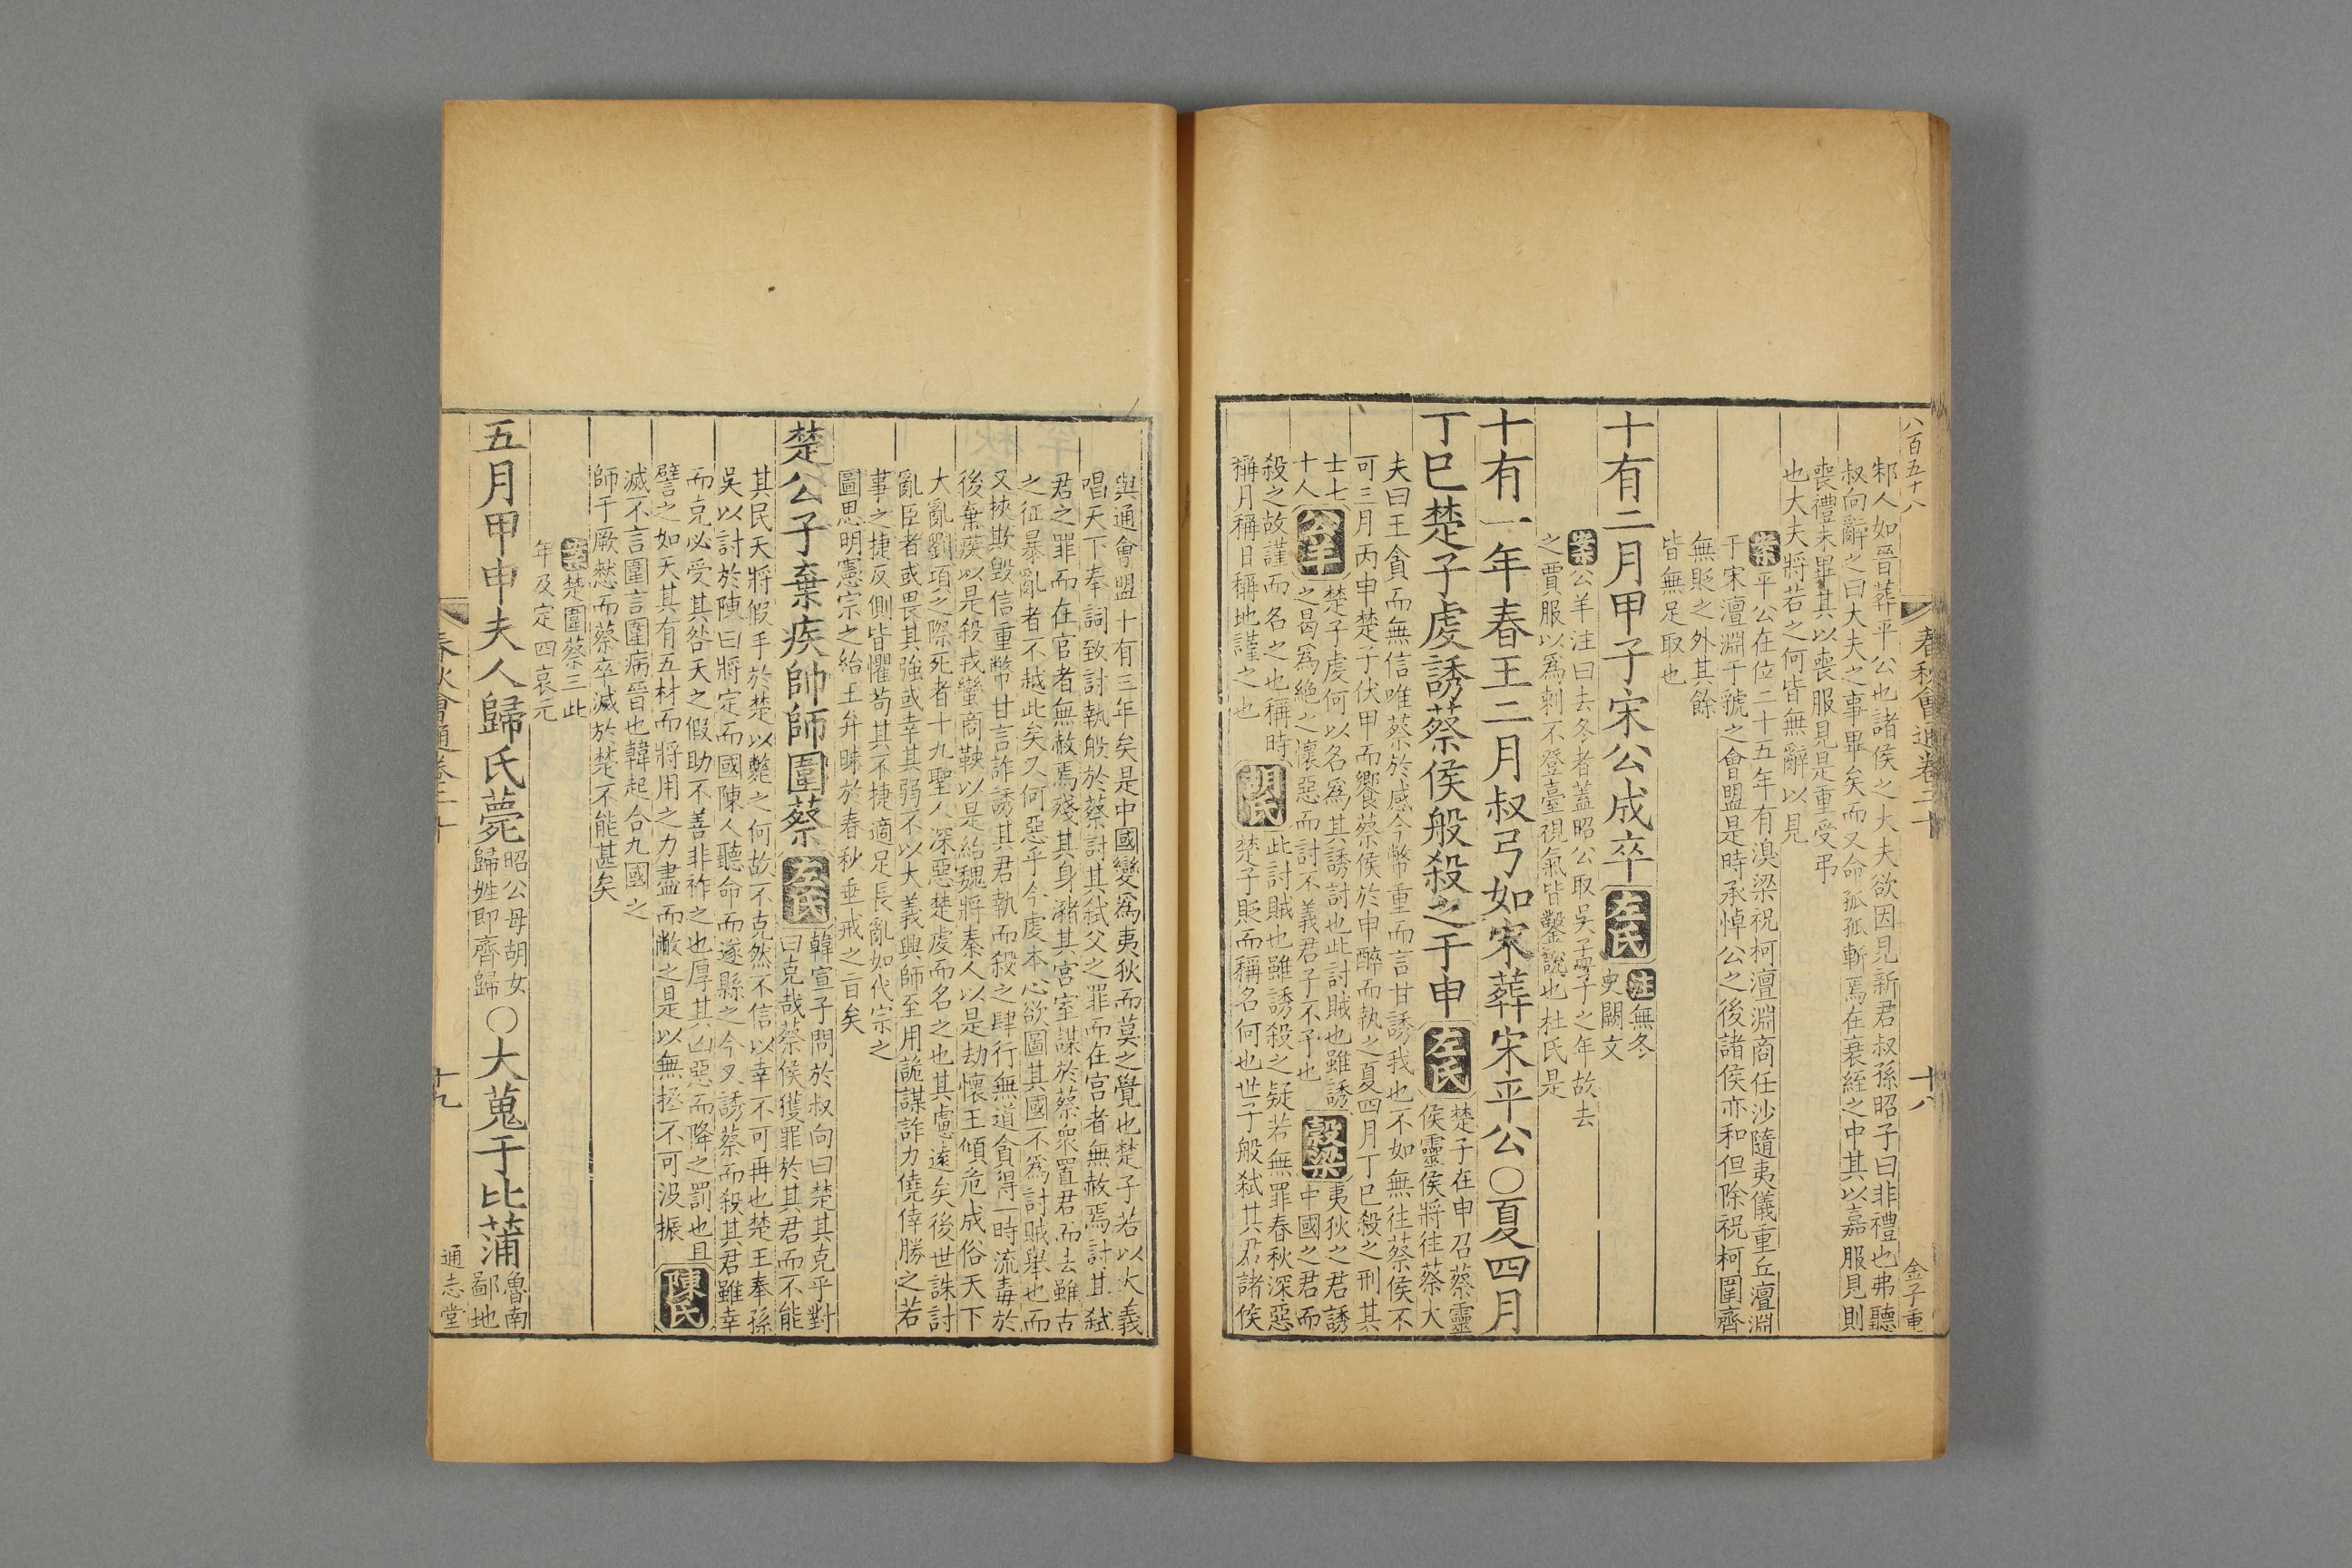 八百五十八
春秋會通卷二十
十八
金子重
邾人如晉葬平公也諸侯之大夫欲因見新君叔孫昭子曰非禮也弗聽
叔向辭之曰大夫之事畢矣而又命孤孤斬焉在衰絰之中其以嘉服見則
喪禮未畢其以喪服見是重受弔
也大夫將若之何皆無辭以見
案平公在位二十五年有溴梁祝柯澶淵商任沙隨夷儀重丘澶淵
于宋澶淵于虢之會盟是時承悼公之後諸侯亦和但除祝柯圍齊
無貶之外其餘
皆無足取也
十有二月甲子宋公成卒 左氏 注無冬
史闕文
案公羊注曰去冬者蓋昭公取吳孟子之年故去
之賈服以爲刺不登臺視氣皆鑿說也杜氏是
十有一年春王二月叔弓如宋葬宋平公○夏四月
丁巳楚子虔誘蔡侯般殺之于申 左氏 楚子在申召蔡靈
侯靈侯將往蔡大
夫曰王貪而無信唯蔡於感今幣重而言甘誘我也不如無往蔡侯不
可三月丙申楚子伏甲而饗蔡侯於申醉而執之夏四月丁巳殺之刑其
士七
十人 公羊 楚子虔何以名爲其誘討也此討賊也雖誘
之曷爲絕之懷惡而討不義君子不予也 穀梁 夷狄之君誘
中國之君而
殺之故謹而名之也稱時
稱月稱日稱地謹之也 胡氏 此討賊也雖誘殺之疑若無罪春秋深惡
楚子貶而稱名何也世子般弒其君諸侯
與通會盟十有三年矣是中國變爲夷狄而莫之覺也楚子若以大義
唱天下奉詞致討執般於蔡討其弒父之罪而在宮者無赦焉討其弒
君之罪而在官者無赦焉殘其身瀦其宮室謀於蔡衆置君而去雖古
之征暴亂者不越此矣又何惡乎今虔本心欲圖其國不爲討賊舉也而
又挾欺毀信重幣甘言詐誘其君執而殺之肆行無道貪得一時流毒於
後棄疾以是殺戎蠻商鞅以是紿魏將秦人以是劫懷王傾危成俗天下
大亂劉項之際死者十九聖人深惡楚虔而名之也其慮遠矣後世誅討
亂臣者或畏其強或幸其弱不以大義興師至用詭謀詐力僥倖勝之若
事之捷反側皆懼苟其不捷適足長亂如代宗之
圖思明憲宗之紿王弁昧於春秋垂戒之旨矣
楚公子棄疾帥師圍蔡 左氏 韓宣子問於叔向曰楚其克乎對
曰克哉蔡侯獲罪於其君而不能
其民天將假手於楚以斃之何故不克然不信以幸不可再也楚王奉孫
吳以討於陳曰將定而國陳人聽命而遂縣之今又誘蔡而殺其君雖幸
而克必受其咎天之假助不善非祚之也厚其凶惡而降之罰也且
譬之如天其有五材而將用之力盡而敝之是以無拯不可沒振 陳氏
滅不言圍言圍病晉也韓起合九國之
師于厥憖而蔡卒滅於楚不能甚矣
案楚圍蔡三此
年及定四哀元
五月甲申夫人歸氏薨 昭公母胡女
歸姓即齊歸 ○大蒐于比蒲 魯南
鄙地
春秋會通卷二十
十九
通志堂